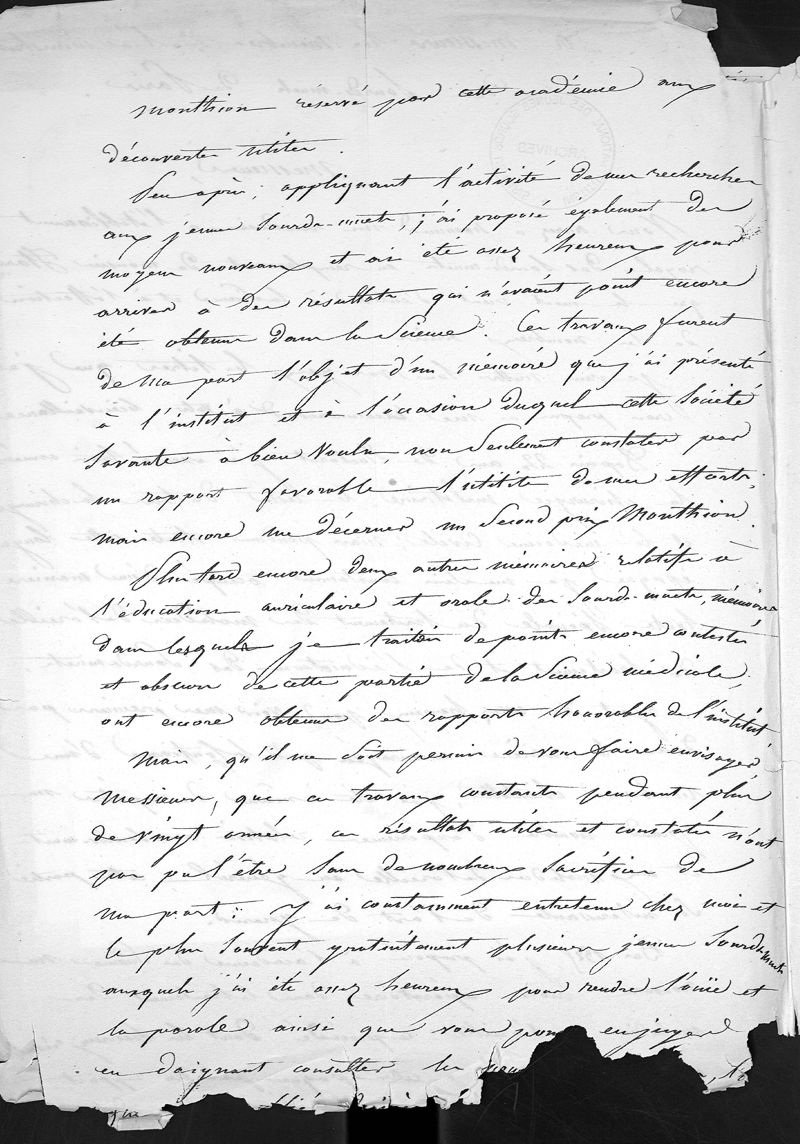 Monthion réservé par cette académie aux
découvertes utiles.
Peu après, appliquant l'activité de mes recherches
aux jeunes sourds-muets, j'ai proposé également des
moyens nouveaux et ai été assez heureux pour
arriver à des résultats qui n'avaient point encore
été obtenus dans la Science. Ces travaux furent
de ma part l'objet d'un mémoire que j'ai présenté
à l'institut et à l'occasion duquel cette Société
Savante à bien voulu, non Seulement constater par
un rapport favorable l'utilité de mes efforts,
mais encore me décerner un Second prix Monthion.
Plus tard encore deux autres mémoires relatifs à
l'éducation auriculaire et orale des Sourds-muets, mémoires
dans lesquels je traitais de points encore contestés
et obscurs de cette partie de la Science médicale,
ont encore obtenus des rapports honorables de l'institut
Mais, qu'il me soit permis de vous faire envisager
Messieurs, que ces travaux constants pendant plus
de vingt années, ces résultats utiles et constatés n'ont
pas pu l'être sans de nombreux Sacrifices de
ma part: j'ai constamment entretenu chez moi et
le plus souvent gratuitement plusieurs jeunes Sourds-Muets
auxquels j'ai été assez heureux pour rendre l'ouïe et
la parole ainsi que vous pou en juger
en daignant consulter les
que
ARCHIVES